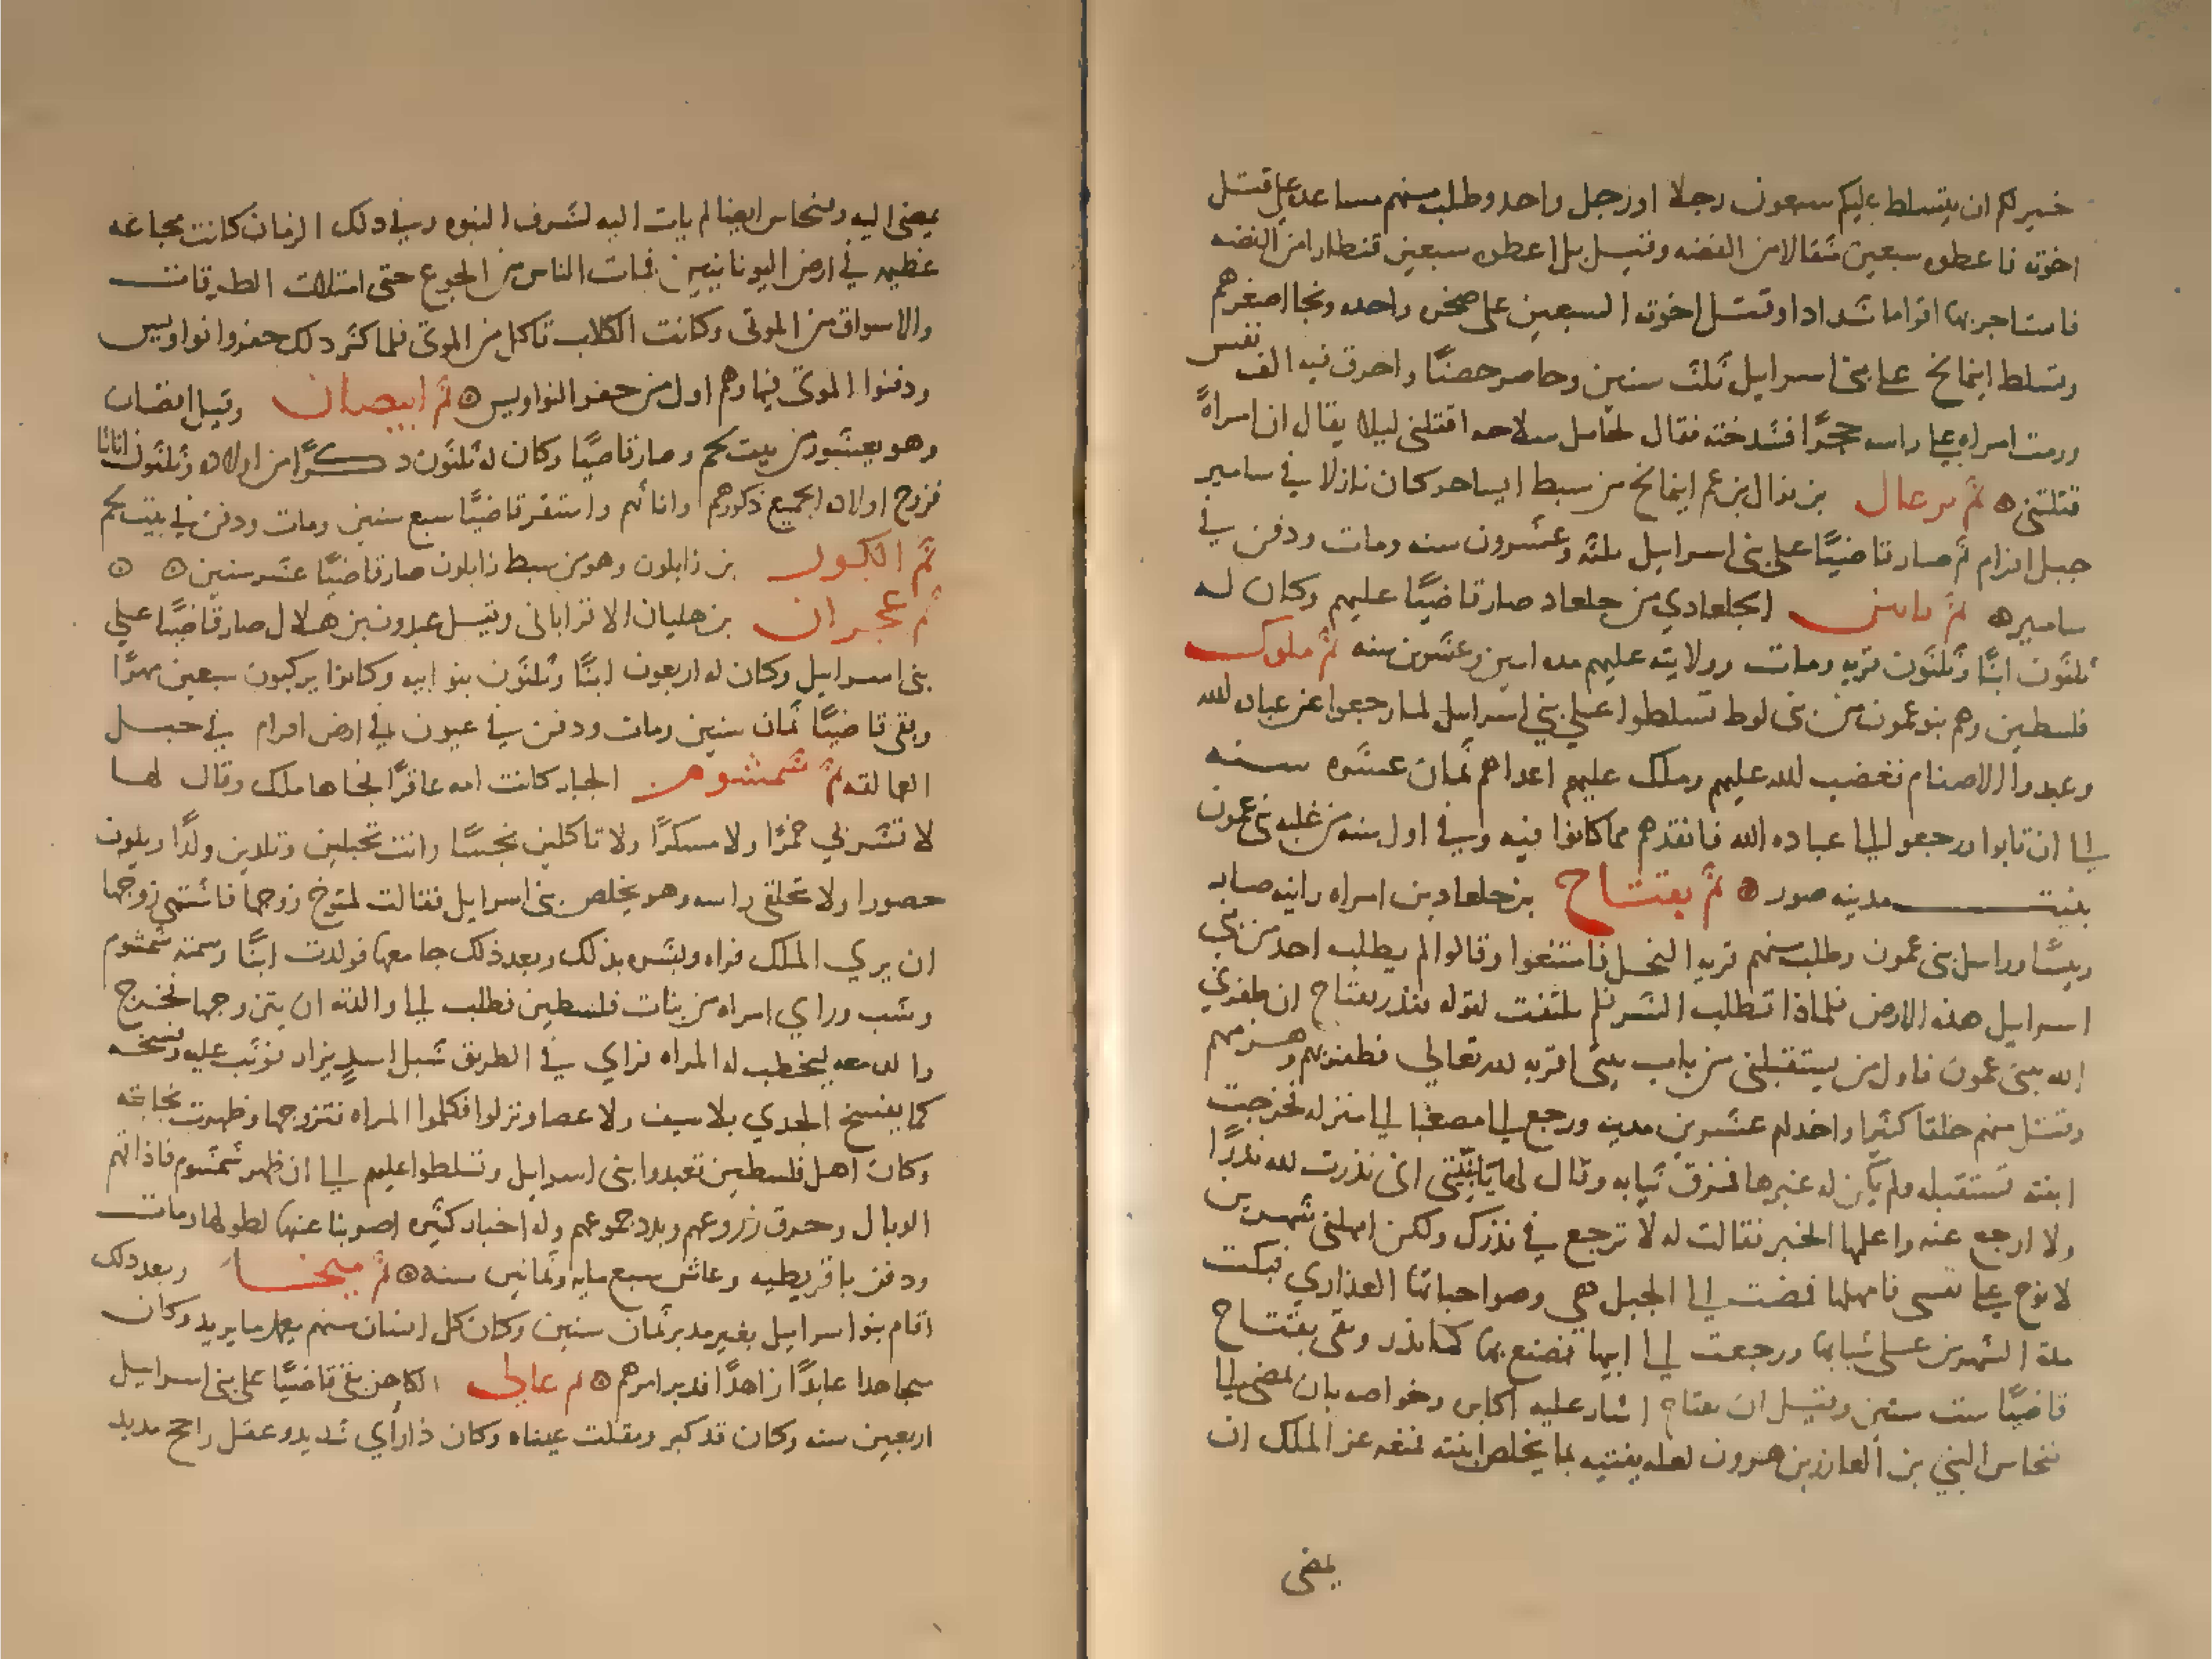 خير لكم ان يتسلط عليكم سبعون رجلا او رجل واحد وطلب منهم مساعده على قتل
اخوته فاعطوه سبعين مثقالا من الفضه وقيل بل اعطوه سبعين قنطارا من الفضه
فاستاجر بها اقواما شدادا وقتل اخوته السبعين على صخره واحده ونجا اصغرهم
وتسلط ابيمالخ على بنى اسرايل ثلث سنين وحاصر حصنًا واحرق فيه الف نفس
ورمت امراه على راسه حجرًا فشدخته فقال لحامل سلاحه اقتلنى ليلا يقال ان امراةً
قتلتنى ثم بن نوال بن عم ابيمالخ من سبط ايساحر كان نازلا في سامير
جبل افرام ثم صار قاضيًا على بنى اسرايل ثلثه وعشرون سنه ومات ودفن في
سامير ثم الجلعادي من جلعاد صار قاضيًا عليهم وكان له
ثلثون ابنًا وثلثون قريه ومات وولايته عليهم مده اثنين وعشرين سنه ثم ملوك
فلسطين وهم بنو عمون من بنى لوط تسلطوا على بني اسرايل لما رجعوا عن عباده الله
وعبدوا الاصنام فغضب الله عليهم وملك عليهم اعداهم ثمان عشره سنه
الى ان تابوا ورجعو الى عباده الله فانقذهم مما كانوا فيه وفي اول سنه من غلبه بنى عمون
بنيت مدينه صور ثم يفتتاح بن جلعاد بن امراه زانيه صار
ريسًا وراسل بنى عمون وطلب منهم قريه النخل فامتنعوا وقالوا لم يطلب احد من بني
اسرايل هذه الارض فلماذا تطلب الشر فلم يلتفت لقوله فنذر يفتاح ان ظفرني
الله ببنى عمون فاول من يستقبلنى من باب بيتى اقربه لله تعالي فظفر بهم وهزمهم
وقتل منهم خلقا كثيرا واخذ لهم عشرين مدينه ورجع الى مصفيا الى منزله فخرجت
ابنته تستقبله ولم يكن له غيرها فمزق ثيابه وقال لها يا بنيتي انى نذرت لله نذرًا
ولا ارجع عنه واعلمها الخبر فقالت له لا ترجع في نذرك ولكن امهلنى شهرين
لانوح على نفسى فامهلها فمضت الى الجبل هي وصواحباتها العذاري فبكت
مدة الشهرين على شبابها ورجعت الى ابيها فصنع بها كما نذر وبقى يفتتاح
قاضيًا ست سنين وقيل ان يفتاح اشار عليه اكابر وخواصه بان يمضى الى
فنحاس النبي بن العازر بن هرون لعله يفتيه بما يخلص ابنته فمنعه عز الملك ان
يمضى
يمضى اليه وفنحاس ايضا لم يات اليه لشرف النبوه وفي ذلك الزمان كانت مجاعه
عظيمه في ارض اليونانيين فمات الناس من الجوع حتى امتلات الطرقات
والاسواق من الموتى وكانت الكلاب تاكل من الموتى فلما كثر ذلك حفروا نواويس
ودفنوا الموتى فيها وهم اول من حفر النواويس ثم ابيصان وقيل ابصان
وهو من بيت لحم وصار قاضيًا وكان له ثلثون ذكرًا من اولاده وثلثون اناثا
فزوج اولاده الجميع ذكورهم واناثهم واستقر قاضيًا سبع سنين ومات ودفن في بيت لحم
ثم الكور بن زابلون وهو من سبط زابلون صار قاضيًا عشر سنين
ثم عجران بن هليان الافراباتى وقيل عبدون بن هلال صار قاضيًا على
بنى اسرايل وكان له اربعون ابنًا وثلثون بنو ابيه وكانوا يركبون سبعين مهرًا
وبقى قاضيًا ثمان سنين ومات ودفن في عيون في ارض افرام في جبل
العمالقه ثم شمشوم الجبار كانت امه عاقرًا فجاها ملك وقال لها
لا تشربي خمرًا ولا مسكرًا ولا تاكلين نجسًا وانت تحبلين وتلدين ولدًا ويكون
حصورا ولا تحلقى راسه وهو يخلص بنى اسرايل فقالت لمنوخ زوجها فاشتهى زوجها
ان يري الملك فراه وبشره بذلك وبعد ذلك جامعها فولدت ابنًا وسمته شمشوم
وشب وراي امراه من بنات فلسطين فطلب الى والدته ان يتزوجها فخرج
والده معه ليخطب له المراه فراي في الطريق شبل اسد يزار فوثب عليه وفسخه
كما يفسخ الجدي بلا سيف ولا عصا ونزلوا فكلموا المراه فتزوجها وظهرت
وكان اهل فلسطين تعبدوا بنى اسرايل وتسلطوا عليهم الى ان ظهر شمشوم فاذاقهم
الوبال وحرق زروعهم وبدد جموعهم وله اخبار كثيره اضربنا عنها لطولها ومات
ودفن وعاش سبع مايه وثمانين سنه ثم ميخا وبعد ذلك
اقام بنو اسرايل بغير مدبر ثمان سنين وكان كل انسان منهم يعمل ما يريد وكان
مجاهدا عابدًا زاهدًا فدبر امرهم ثم عالى الكاهن بقى قاضيًا على بنى اسرايل
اربعين سنه وكان قد كبر وثقلت عيناه وكان ذا رأي شديد وعقل راجح مديد